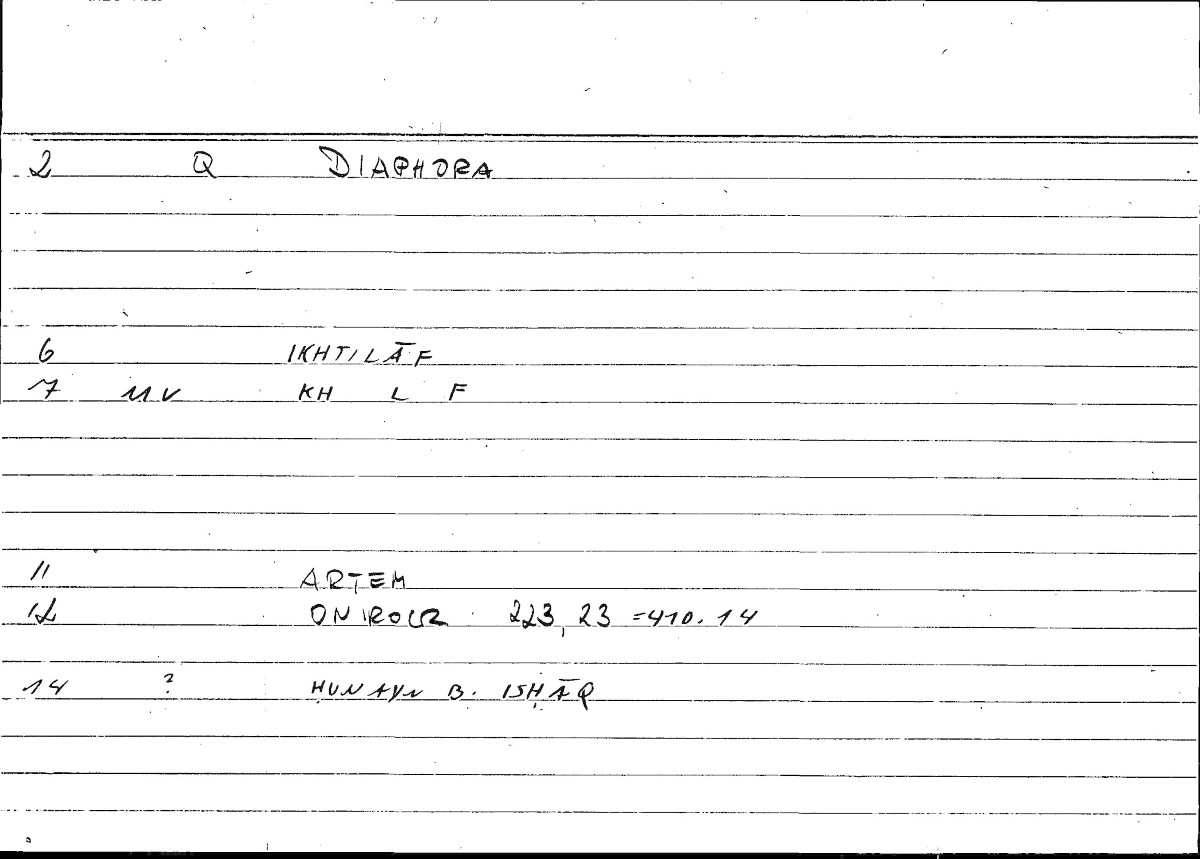 2 Q DIAPHORA
6 IKHTILĀF
7 11 V KH L F
11 ARṬEM
12 ONIROCR 223, 23 = 410. 14
14 ? ḤUNAYN B. ISḤĀQ